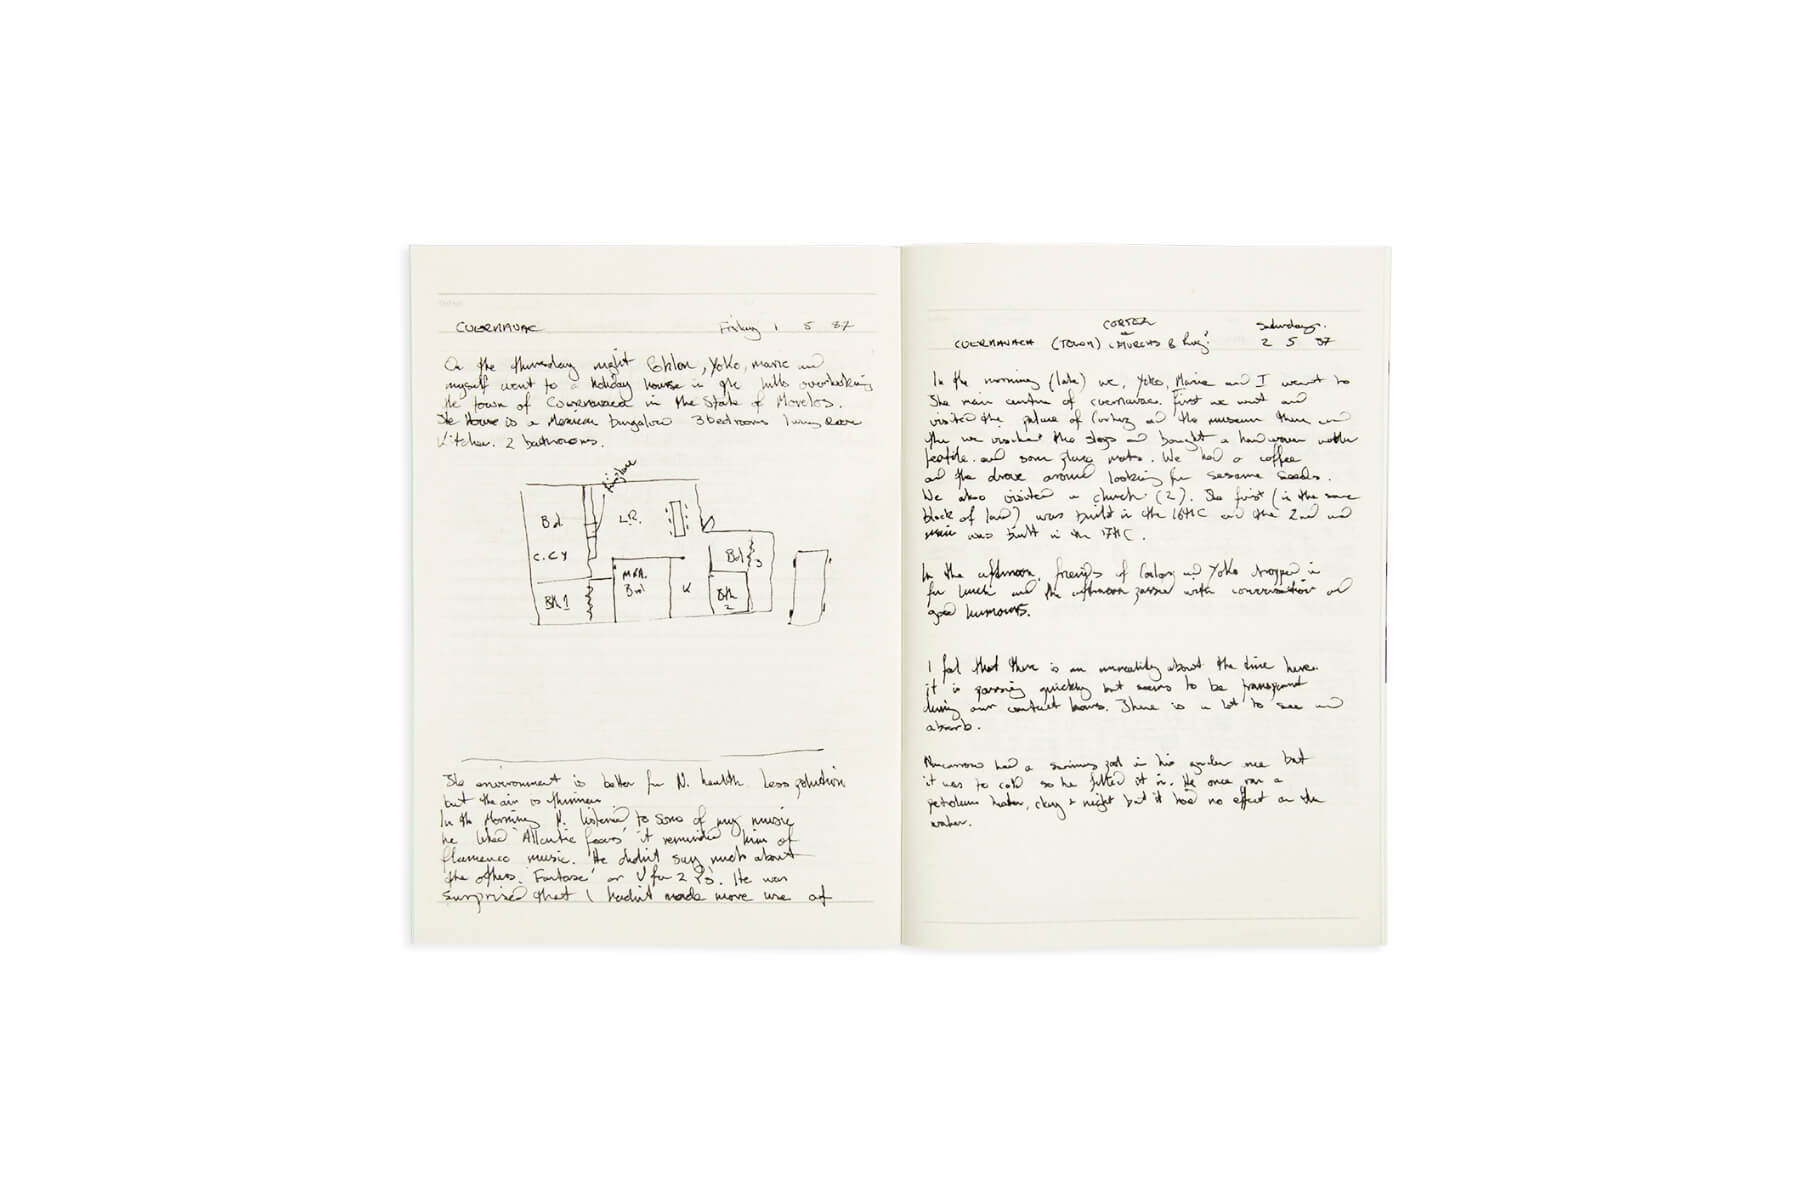 CUERNAVAC Friday 1 5 87
On the thursday night Conlon, Yoko, marie and
myself went to a holiday house in the hills overlooking
the town of Cuernavaca in the State of Morelos.
The House is a Mexican bungalow 3 bedrooms 1 living Room
Kitchen. 2 bathrooms.
Fireplace
Bd
L.R.
C.C Y
Bd
3
MFA.
Bed
K
Bth 1
Bth
2
The environment is better for N. health. Less polution
but the air is thinner.
In the Morning N. listened to some of my music
he liked 'Atlantic fears' it reminded him of
flamenco music. He didn't say much about
the others 'Fantasie' or V for 2 P's. He was
surprised that I hadn't made more use of
CORTEZ
CUERNAVACA (TOWN) CHURCHES & Saturday.
2 5 87
In the morning (late) we, Yoko, Marie and I went to
The main centre of cuernavac. First we went and
visited the palace of Cortez and the museum there and
then we visited the shops and bought a hand woven
textile. and some place mats. We had a coffee
and the drove around looking for sesame seeds.
We also visited a church (2). The first (in the same
block of land) was built in the 16th C and the 2nd and
main was built in the 17th C.
In the afternoon, friends of Conlon and Yoko dropped in
for lunch and the afternoon passed with conversation and
good humours.
I feel that there is an unreality about the time here.
it is passing quickly but seems to be
during our contact hours. There is a lot to see and
absorb.
Nancarrow had a swimming pool in his garden once but
it was to cold so he filled it in. He once ran a
petroleum heater, day & night but it had no effect on the
water.